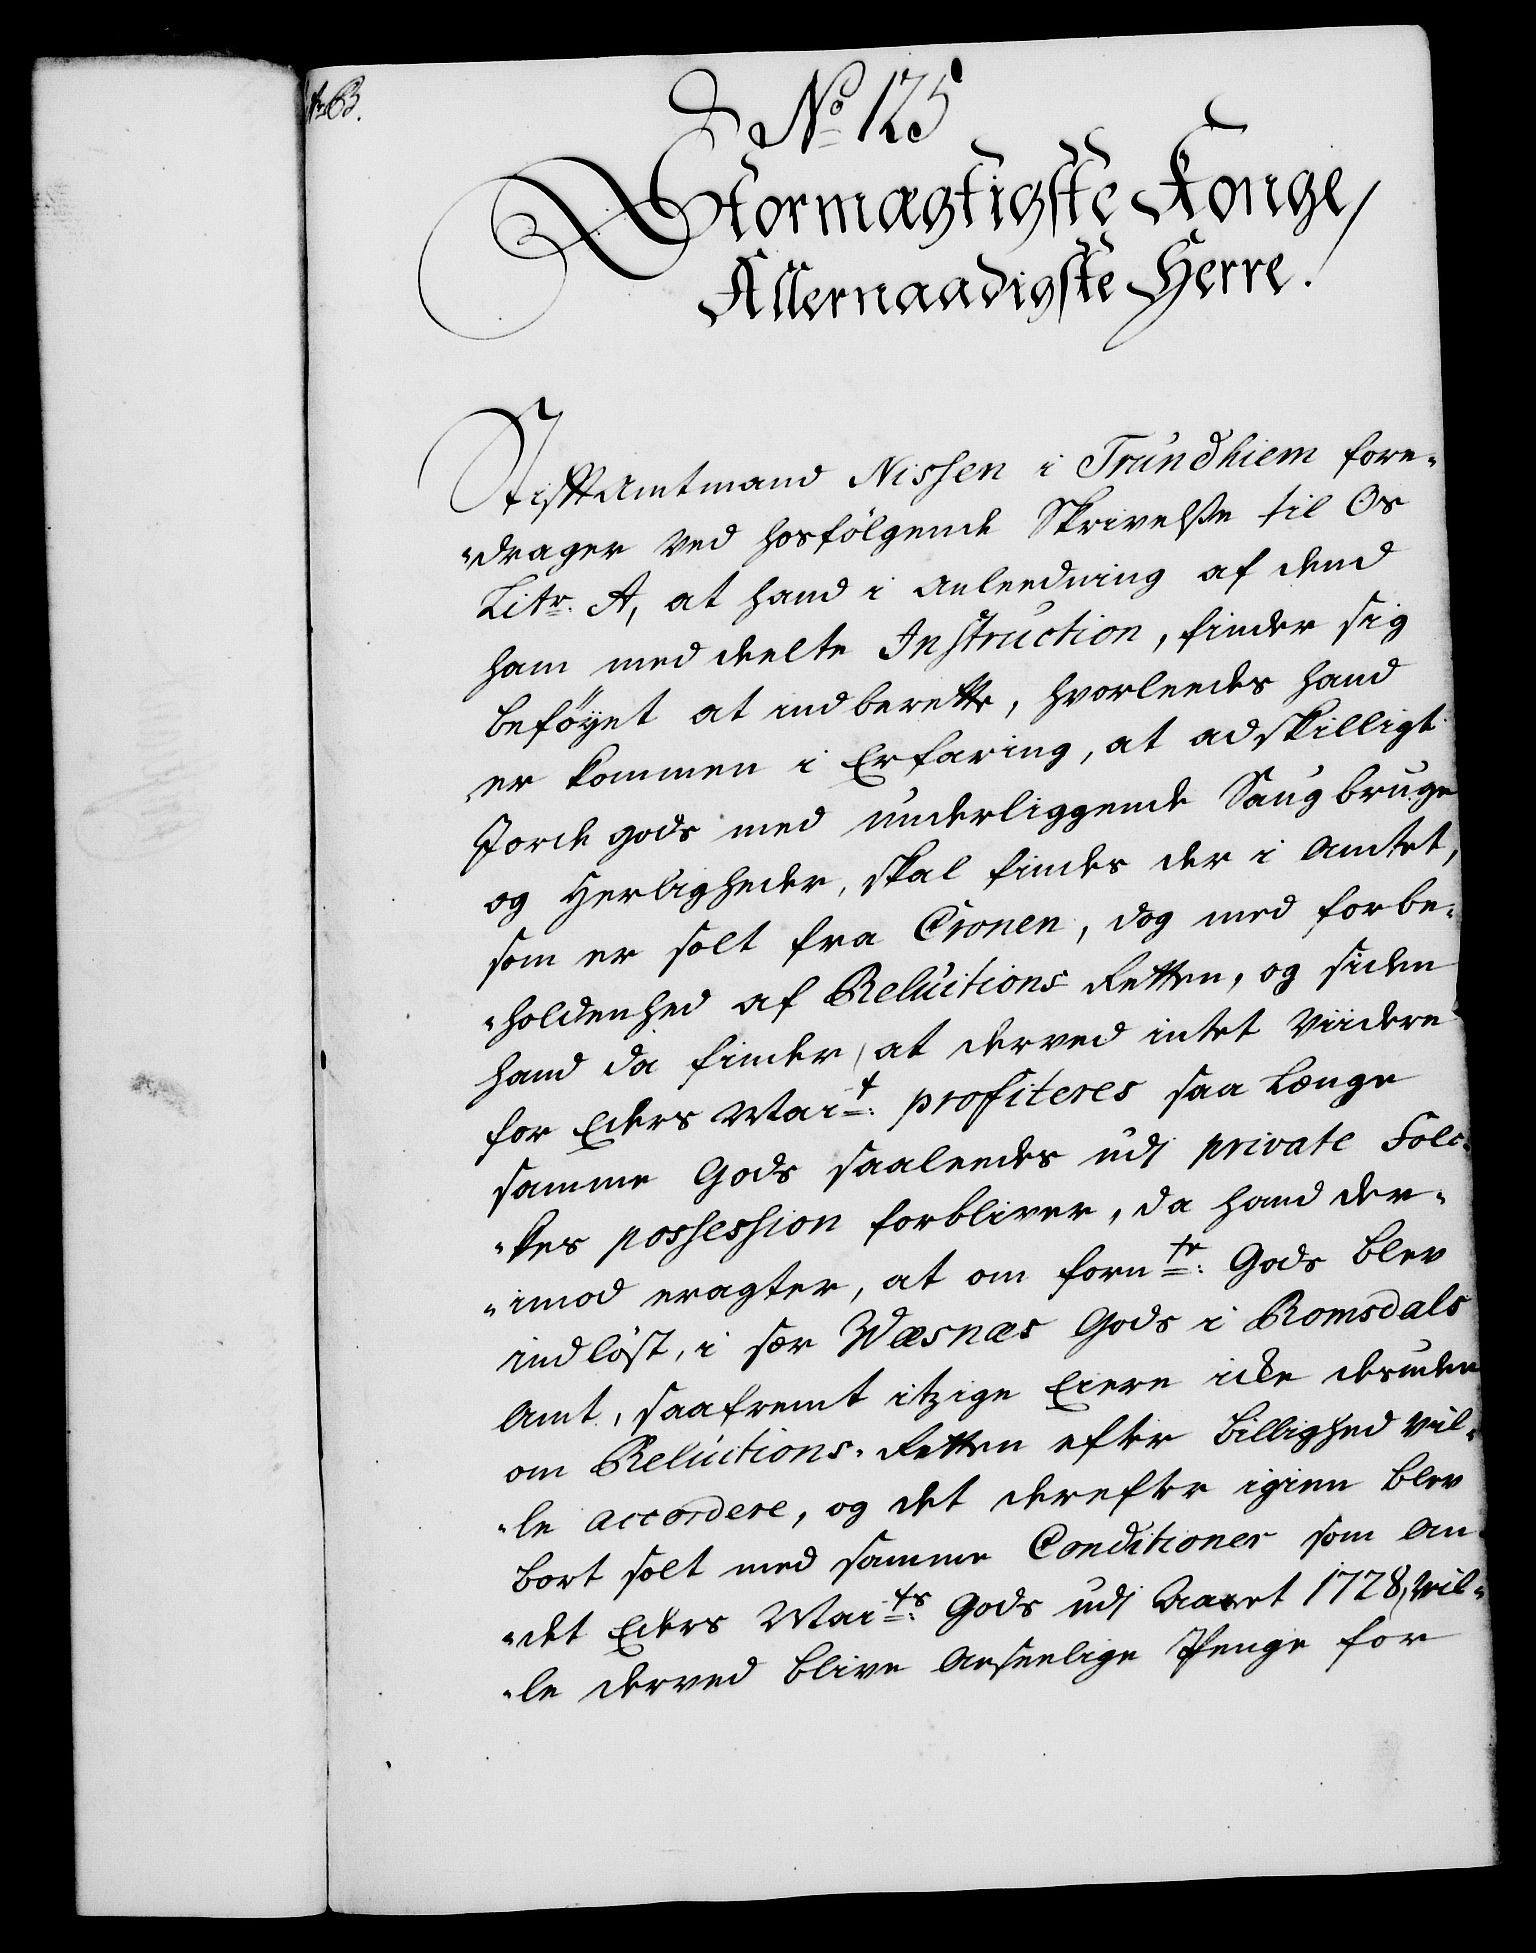 No 125
Stormægtigste Konge,
Allernaadigste Herre.
StiftAmtmand Nissen i Trundhiem fore-
-drager ved hosfölgende Skrivelse til Os
Litr. A, at hand i anleedning af dend
ham meddeelte Instruction, finder sig
beföyet at indberette, hvorleedes hand
er kommen i Erfaring, at adskilligt
Jordegods med underliggende Saugbruge
og Herligheder, skal findes der i Amtet,
som er solt fra Cronen, dog med forbe-
-holdenhed af Relutions Retten, og siden
hand da finder, at derved intet viidere
for Eders Mait: profiteres saa længe
samme Gods saaleedes udi private Folc-
-kes possession forbliver, da hand der-
-imod eragter, at om fornte: Gods blev
indlöst, i sær Wæsnæs Gods i Romsdals
Amt, saafremt itzige Eiere icke desuden
om Relutions-Retten efter billighed vil-
-le accordere, og det derefter igien blev
bort solt med samme Conditioner som an-
-det Eders Maits: Gods udi Aaret 1728, vil-
-le derved blive anseelige Penge for